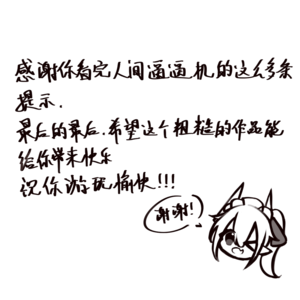 感谢你看完人间逼逼机的这么多条
提示.
最后的最后.希望这个粗糙的作品能
给你带来快乐
祝你游玩愉快!!!
谢谢!